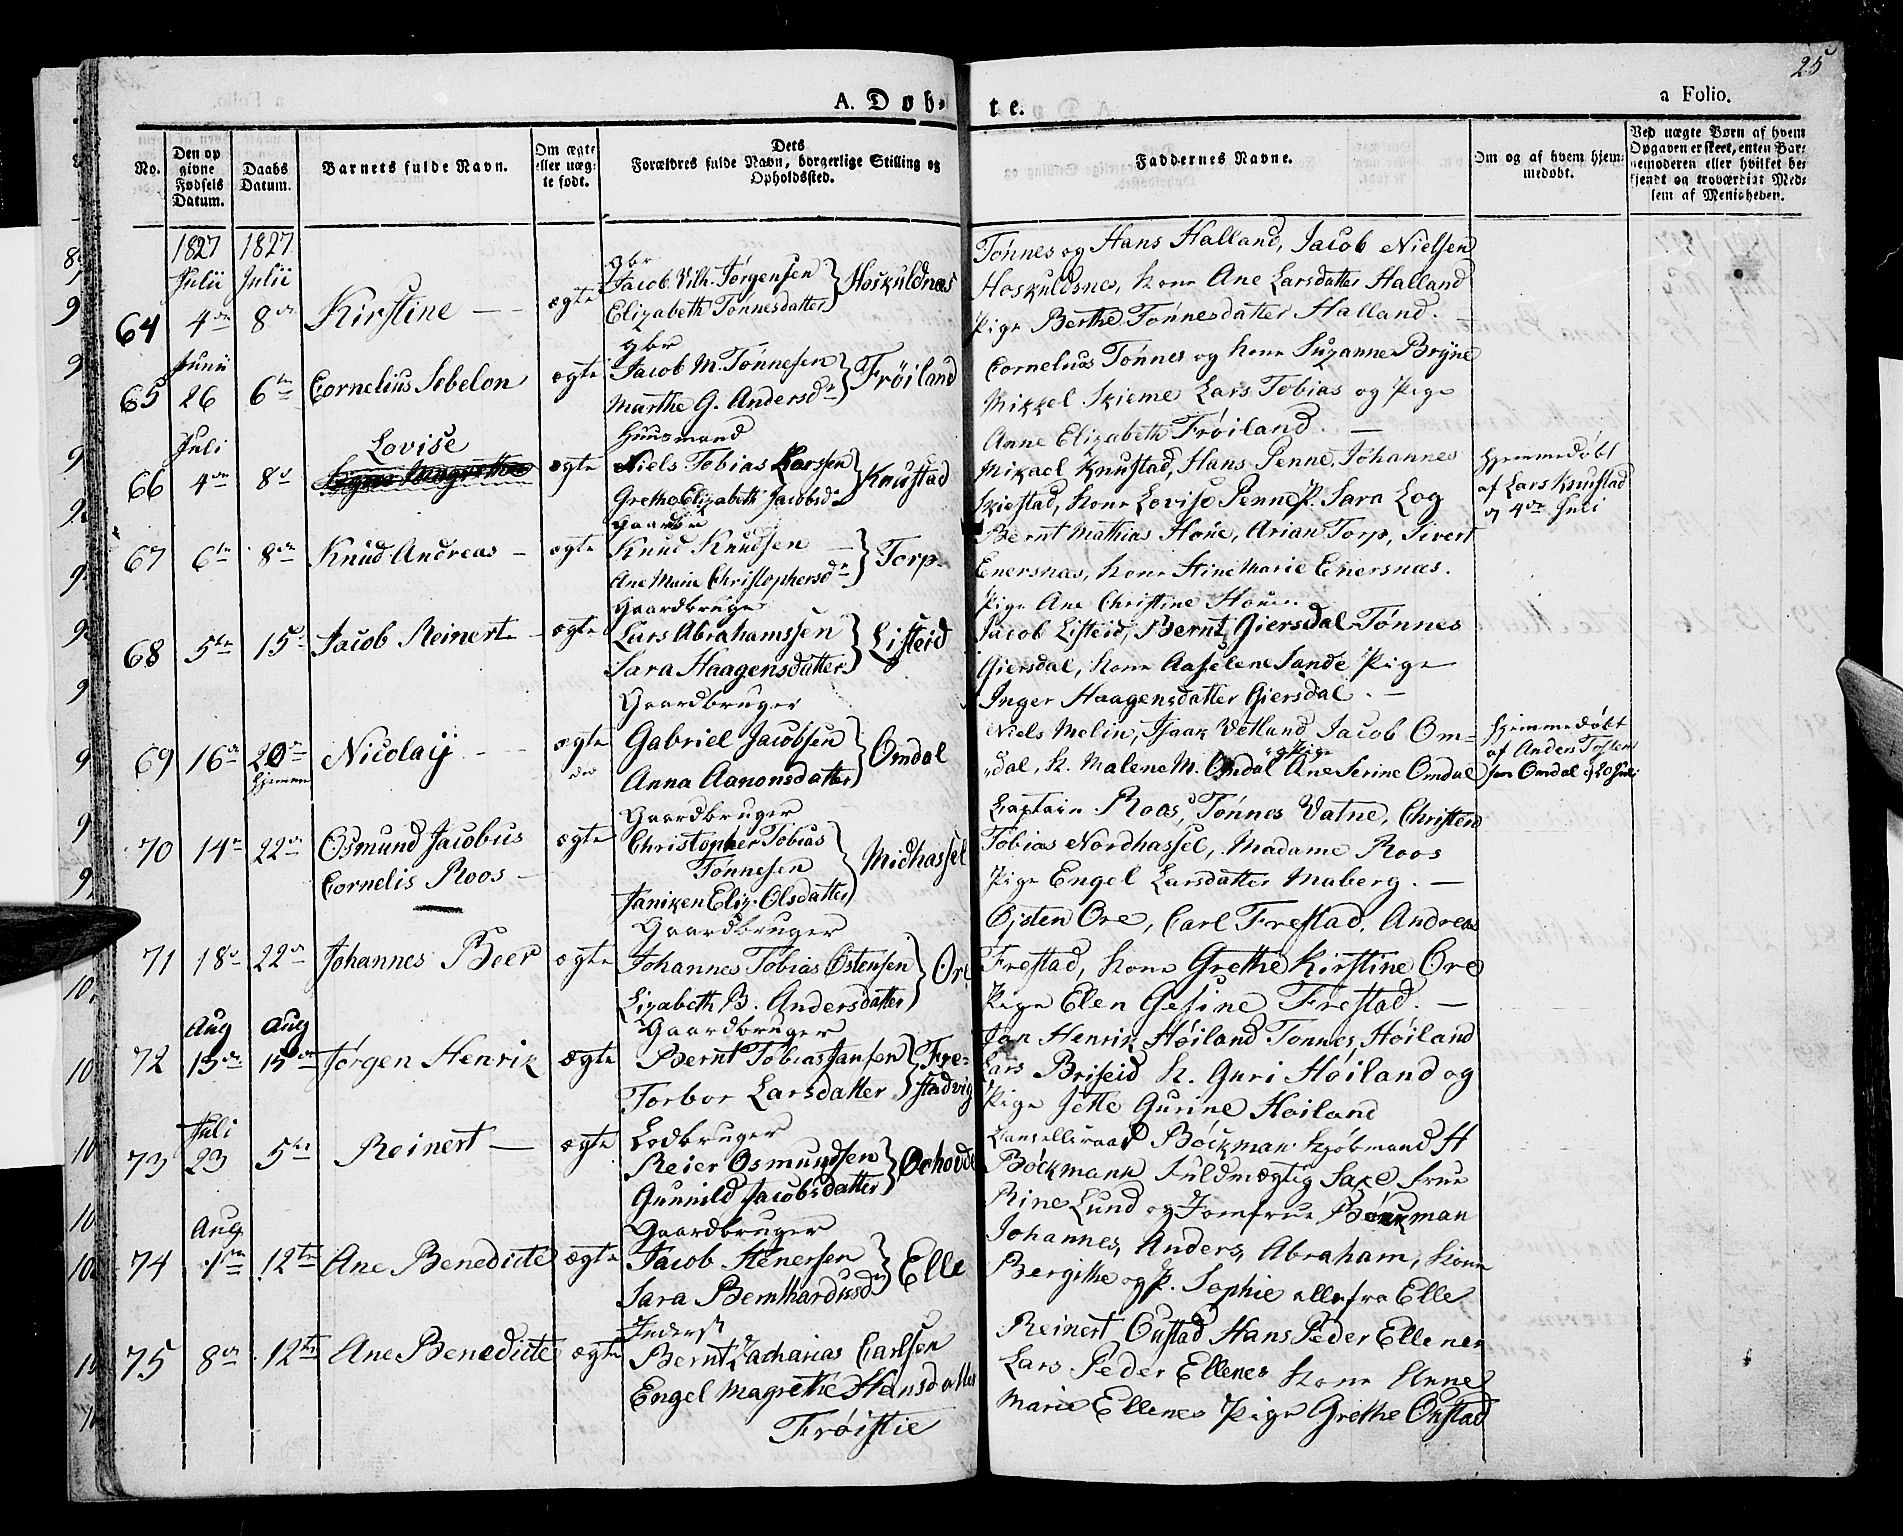 25
A. Døb-
te.
a Folio.
No.
Den op
givne
Fødsels
Datum.
Daabs
Datum.
Barnets fulde Navn.
Om ægte
eller uæg-
te født.
Dets
Forældres fulde Navn, borgerlige Stilling og
Opholdssted.
Faddernes Navne.
Om og af hvem hjem-
medøbt.
Ved uægte Børn af hvem
Opgaven er skeet, enten Bar-
nemoderen eller hvilket be-
kjendt og troværdigt Med-
lem af Menigheden.
1827 1827
Julii Julii
64 4de 8de Kirstine ægte
gbr
Jacob Vilh. Jørgensen
Elizabeth Tønnesdatter
Hoskuldnæs
Tønnes og Hans Halland, Jacob Nielsen
Hoskuldsnes, Kone Ane Larsdatter Halland
Pige Berthe Tønnesdatter Halland.
Junii
65 26 6te Cornelius Sebelon ægte
gbr
Jacob M. Tønnesen
Marthe G. Andersdr
Frøiland
Cornelius Tønnes og Kone Suzanne Bryne
Mikkel Skieme Lars Tobias og Pige
Anne Elizabeth Frøiland.
Juli
66 4de 8d Lovise ægte
Huusmand
Niels Tobias Larssen
Grethe Elizabeth Jacobsdr
Knustad
Mikael Knustad, Hans Penne, Johannes
Skiestad, Kone Lovise Penne P. Sara Log
Hjemmedøbt
af Lars Knustad
og 4de Juli
67 6te 8de Knud Andreas ægte
Gaardbr
Knud Knudsen
Ane Marie Christophersdr
Torp
Bernt Mathias Houe, Arian Torp, Sivert
Enersnæs, Kone Stine Marie Enersnæs.
Pige Ane Christine Houe.
68 5te 15de Jacob Reinert ægte
Gaardbruger
Lars Abrahamssen
Sara Haagensdatter
Listeid
Jacob Listeid, Bernt Giersdal Tønnes
Giersdal, Kone Aaselene Sande Pige
Inger Haagensdatter Giersdal.
69 16de 20de Nicolaij ægte
Hjemme
Gaardbruger
Gabriel Jacobsen
Anna Aanonsdatter
Omdal
Niels Melin, Isaak Vetland Jacob Om-
dal, K. Malene M. Omdal og Pige Ane Serine Omdal
Hjemmedøbt
af Anders Tosten
sen Omdal d 20 Juli
70 14de 22de Osmund Jacobus
Cornelis Roos ægte
Gaardbruger
Christopher Tobias
Tønnesen
Janiken Eliz. Olsdatter
Midhassel
Captain Roos, Tønnes Vatne, Christen
Tobias Nordhassel, Madame Roos
Pige Engel Larsdatter Maberg.
71 18de 22de Johannes Beer ægte
Gaardbruger
Johannes Tobias Østensen
Lizabeth B. Andersdatter
Ore
Øjsten Ore, Carl Frestad, Andreas
Frestad, Kone Grethe Kirstine Ore
Pige Elen Gesine Frestad.
Aug Aug
72 13de 15de Jørgen Henrik ægte
Gaardbruger
Bernt Tobias Jansen
Torbor Larsdatter
Fre-
stadvig
Jan Henrik Høiland Tønnes Høiland
Lars Briseid K. Guri Høiland og
Pige Jette Gurine Høiland
Juli
73 23 5te Reinert ægte
Lodbruger
Reier Osmundsen
Gunnild Jacobsdatter
Cancelliraad Böckman Kjøbmand H
Böckmann Fuldmægtig Saxe Frue
Rine Lund og Jomfrue Böckman
Aug
74 1te 12te Ane Benedicte ægte
Gaardbruger
Jacob Stenersen
Sara Bernthardusdr
Elle
Johannes, Anders, Abraham, Kone
Bergithe og P. Sophie alle fra Elle
75 8de 12te Ane Benedicte ægte
Inderst
Bernt Zacharias Carlsen
Engel Magrethe Hansdatter
Frøistie
Reinert Oustad Hans Peder Ellenes
Lars Peder Ellenes Kone Anne
Marie Ellenes Pige Grethe Oustad